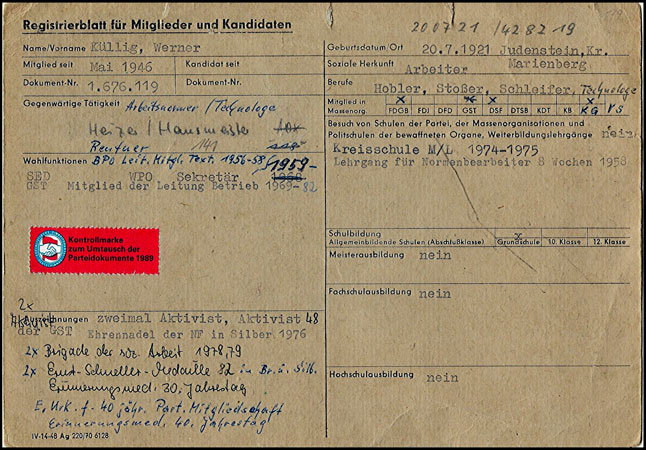 Registrierblatt für Mitglieder und Kandidaten
200721 /4282 19
Name/Vorname Küllig, Werner
Mitglied seit Mai 1946 Kandidat seit
Dokument-Nr. 1.676.119 Dokument-Nr.
Gegenwärtige Tätigkeit Arbeitsnormer/Technologe
Heizer/Hausmeister
Rentner
Wahlfunktionen BPO Leit. Mitgl. Text. 1956-58
1959-
SED WPO Sekretär 1968
GST Mitglied der Leitung Betrieb 1969-82
Kontrollmarke
zum Umtausch der
Parteidokumente 1989
2x
Aktivist
Auszeichnungen zweimal Aktivist, Aktivist 48
der GST Ehrennadel der NF in Silber 1976
2x Brigade der soz. Arbeit 1978,79
2x Ernst-Schneller-Medaille 82 in Br. u. Silb.
Erinnerungsmed. 30. Jahrestag
E. Urk. f. 40 jähr. Part. Mitgliedschaft
Erinnerungsmed. 40. Jahrestag
IV-14-48 Ag 220/70 6128
Geburtsdatum/Ort 20.7.1921 Judenstein,Kr.
Marienberg
Soziale Herkunft Arbeiter
Berufe Hobler, Stoßer, Schleifer, Technologe
Mitglied in
Massenorg.
x x x x
FDGB FDJ DFD GST DSF DTSB KDT KB KG VS
Besuch von Schulen der Partei, der Massenorganisationen und
Politschulen der bewaffneten Organe, Weiterbildungslehrgänge nein
Kreisschule M/L 1974-1975
Lehrgang für Normenbearbeiter 8 Wochen 1958
Schulbildung
Allgemeinbildende Schulen (Abschlußklasse) x Grundschule 10. Klasse 12. Klasse
Meisterausbildung nein
Fachschulausbildung nein
Hochschulausbildung nein